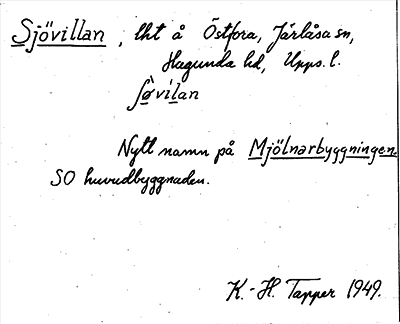 Sjövillan, lht å Östfora, Järlåsa sn,
Hagunda hd, Upps. l.
ʃø̀vilan
Nytt namn på Mjölnarbyggningen.
SO huvudbyggnaden.
K.-H. Tapper 1949.